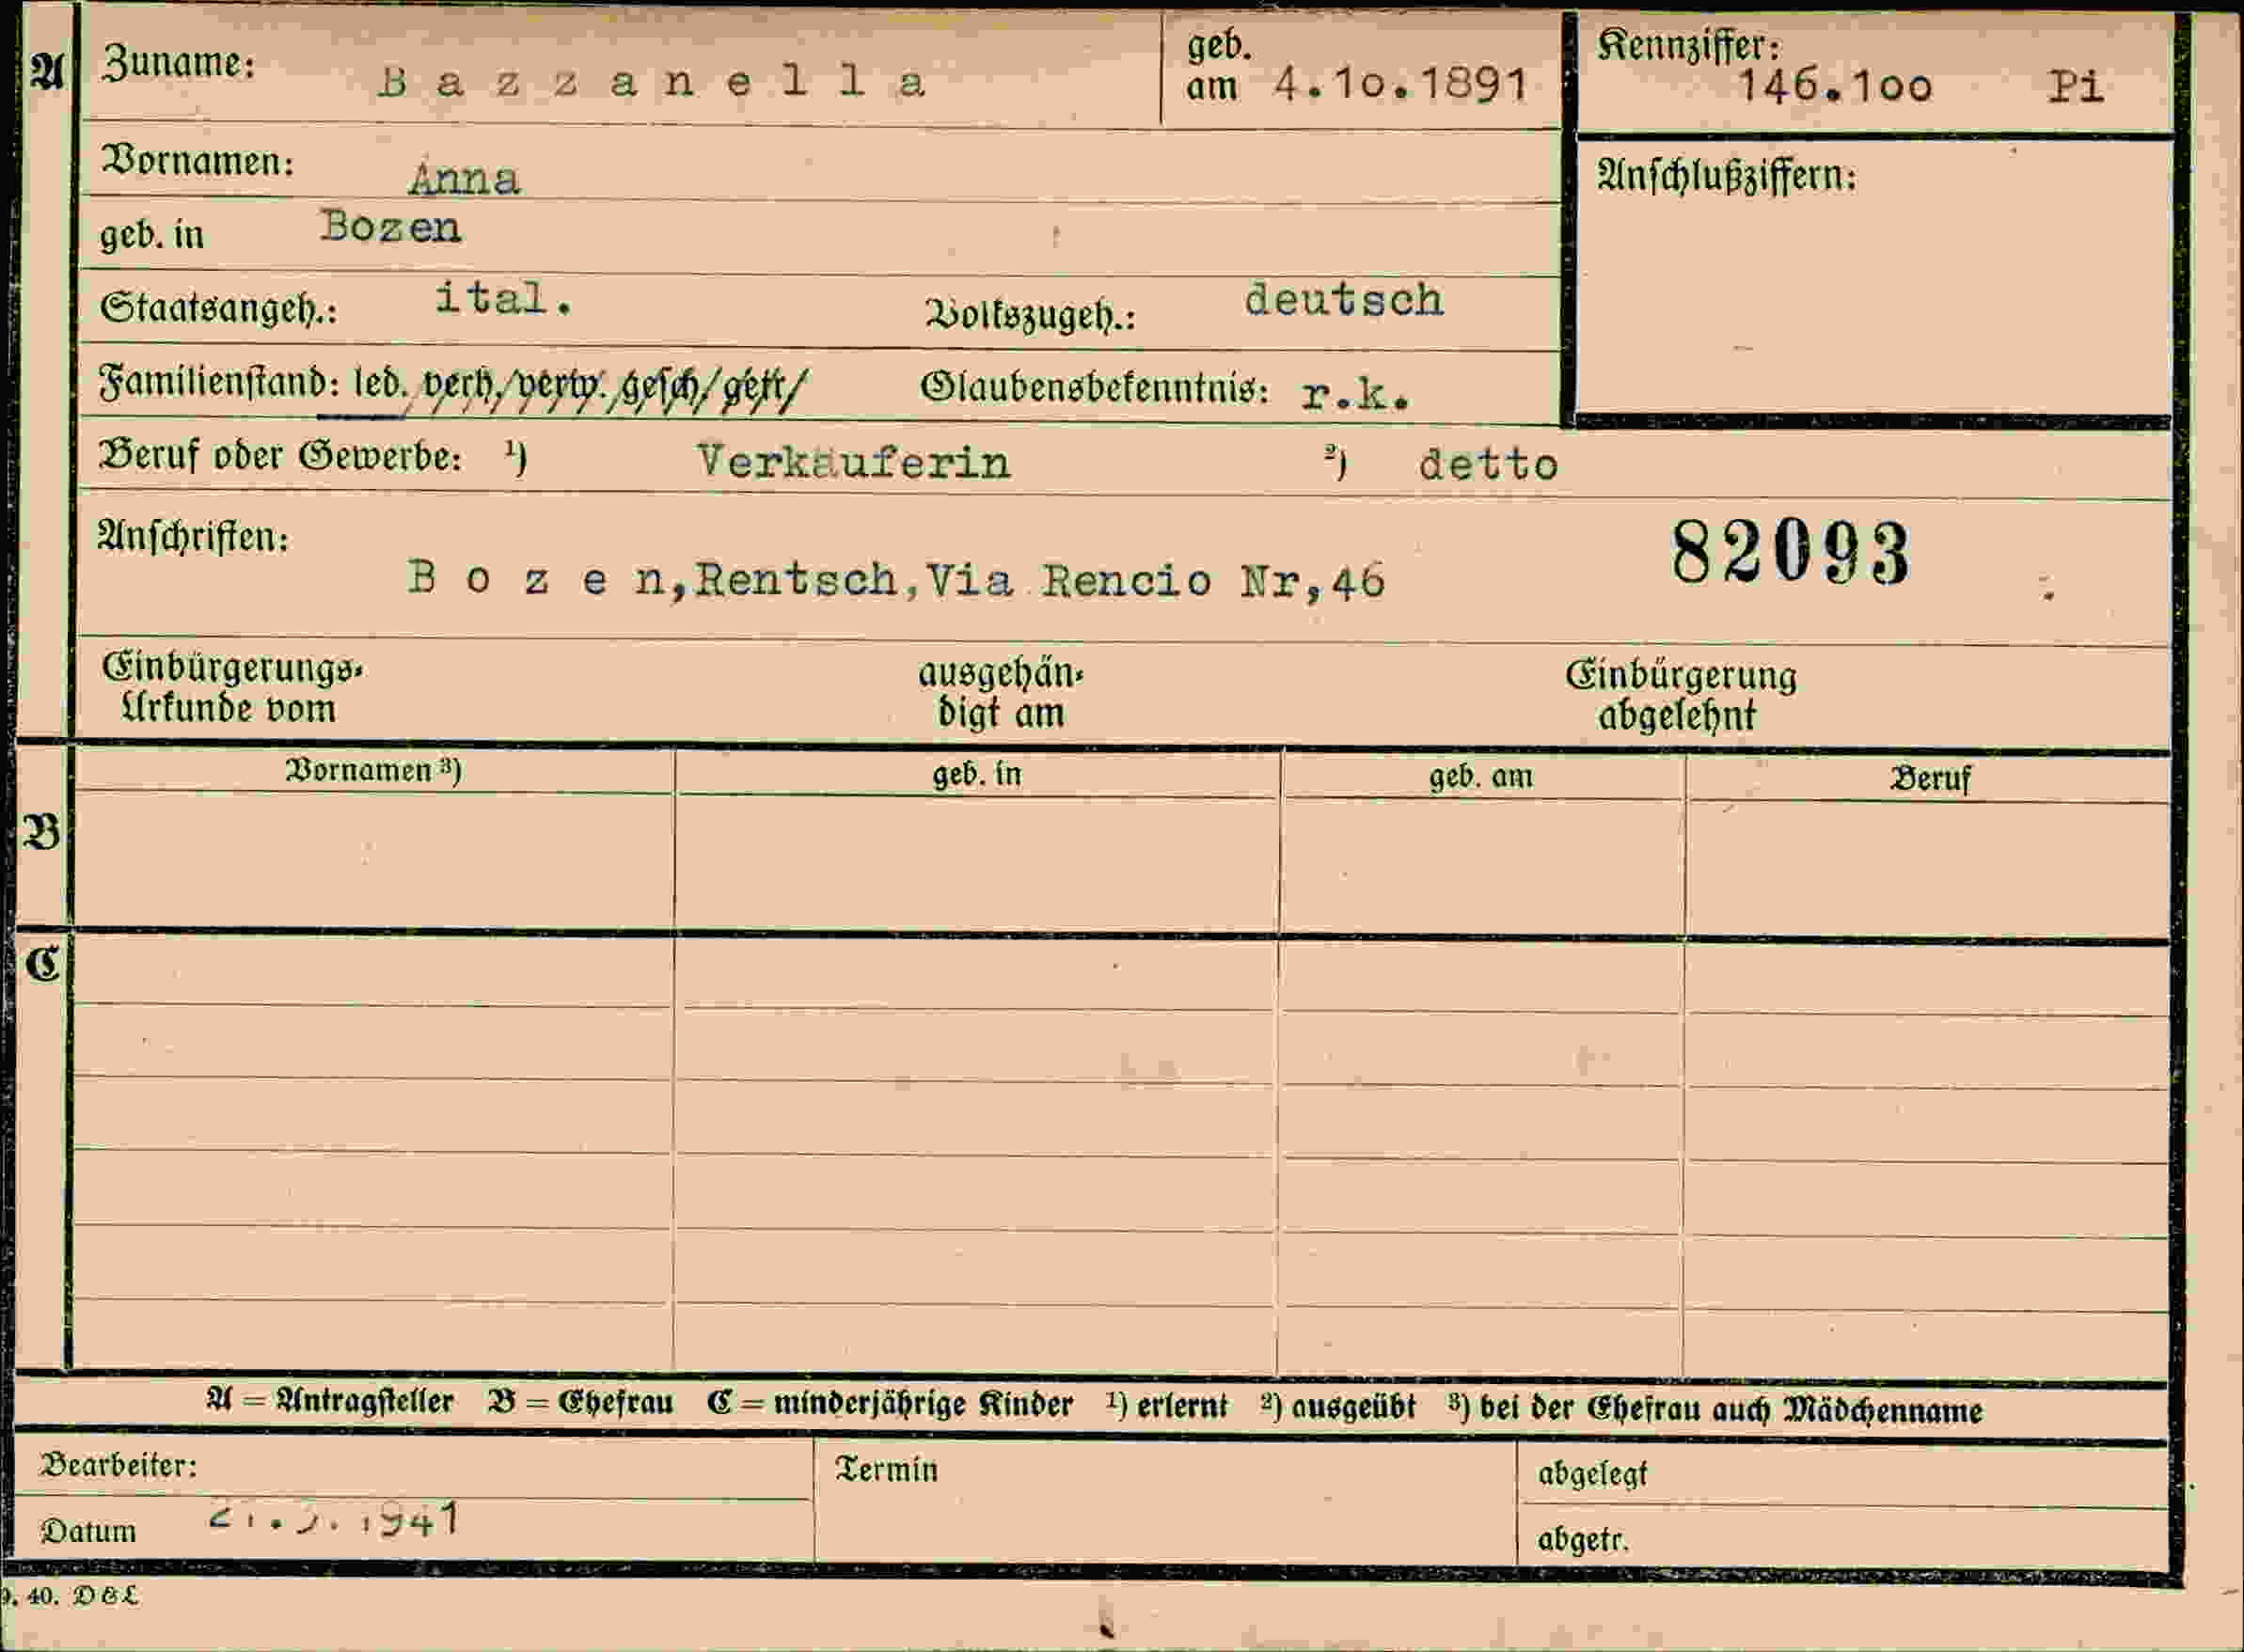 A Zuname: Bazzanella geb. am 4.10.1891 Kennziffer: 146.100 Pi
Vornamen: Anna Anschlußziffern:
geb. in Bozen
Staatsangeh.: ital. Volkszugeh.: deutsch
Familienstand: led. verh. verw. gesch. getr. Glaubensbekenntnis: r.k.
Beruf oder Gewerbe: ¹) Verkäuferin ²) detto
Anschriften: 82093
Bozen, Rentsch, Via Rencio Nr, 46
Einbürgerungs- ausgehän- Einbürgerung
Urkunde vom digt am abgelehnt
Vornamen ³) geb. in geb. am Beruf
B
C
A = Antragsteller B = Ehefrau C = minderjährige Kinder ¹) erlernt ²) ausgeübt ³) bei der Ehefrau auch Mädchenname
Bearbeiter: Termin abgelegt
Datum 1941 abgetr.
9. 40. D & L